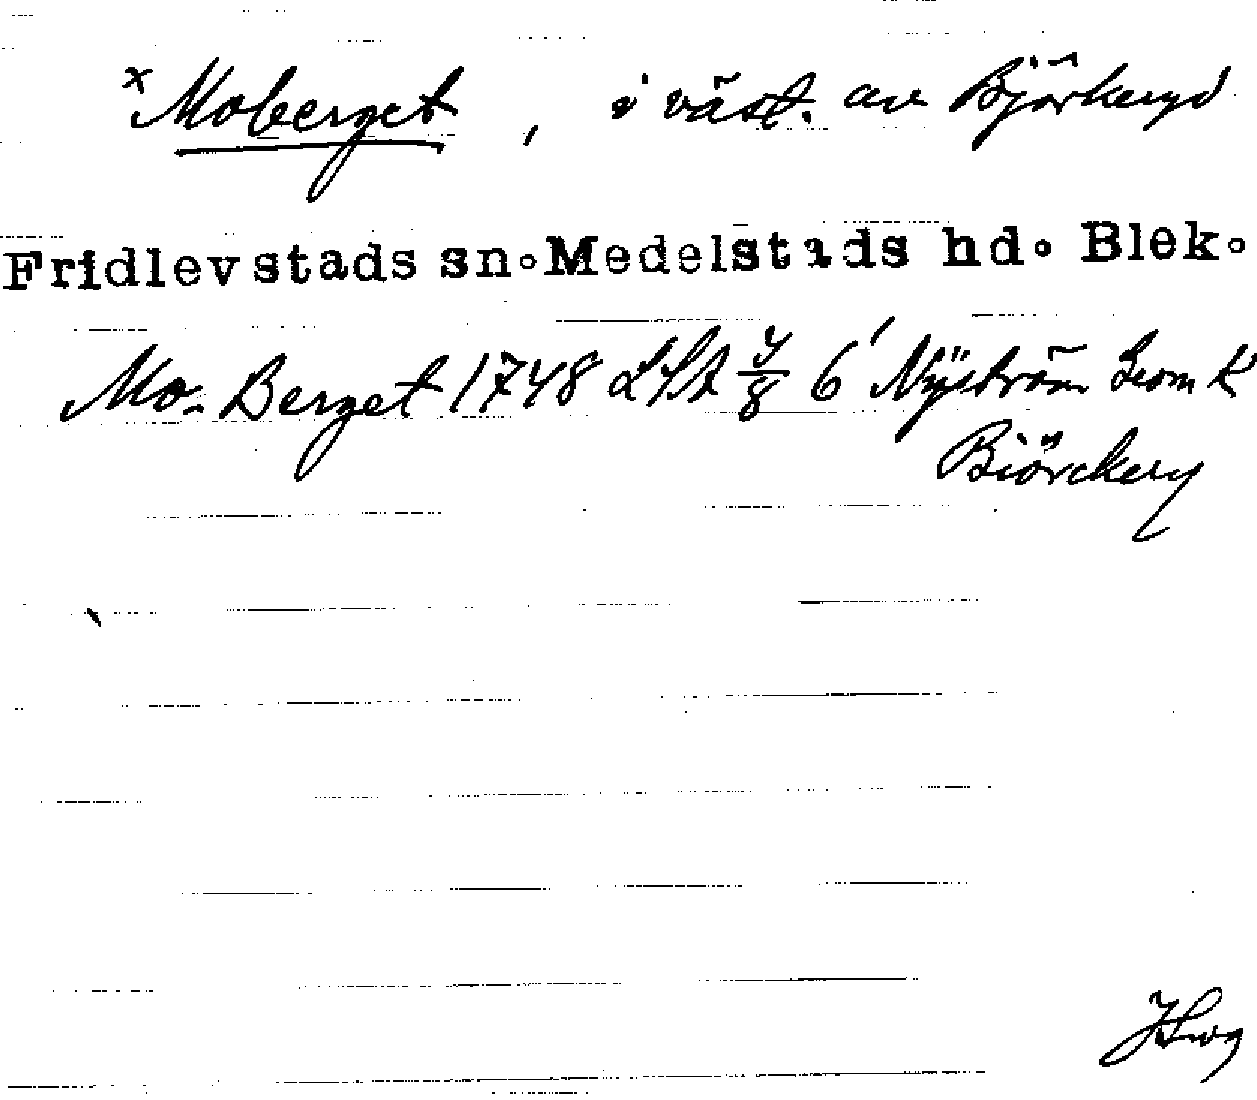 x Moberget, i väst. av Björkeryd
Fridlevstads sn. Medelstads hd. Blek.
Mo-Berget 1748 LSA 6 Nÿström Geom K
Biörckery